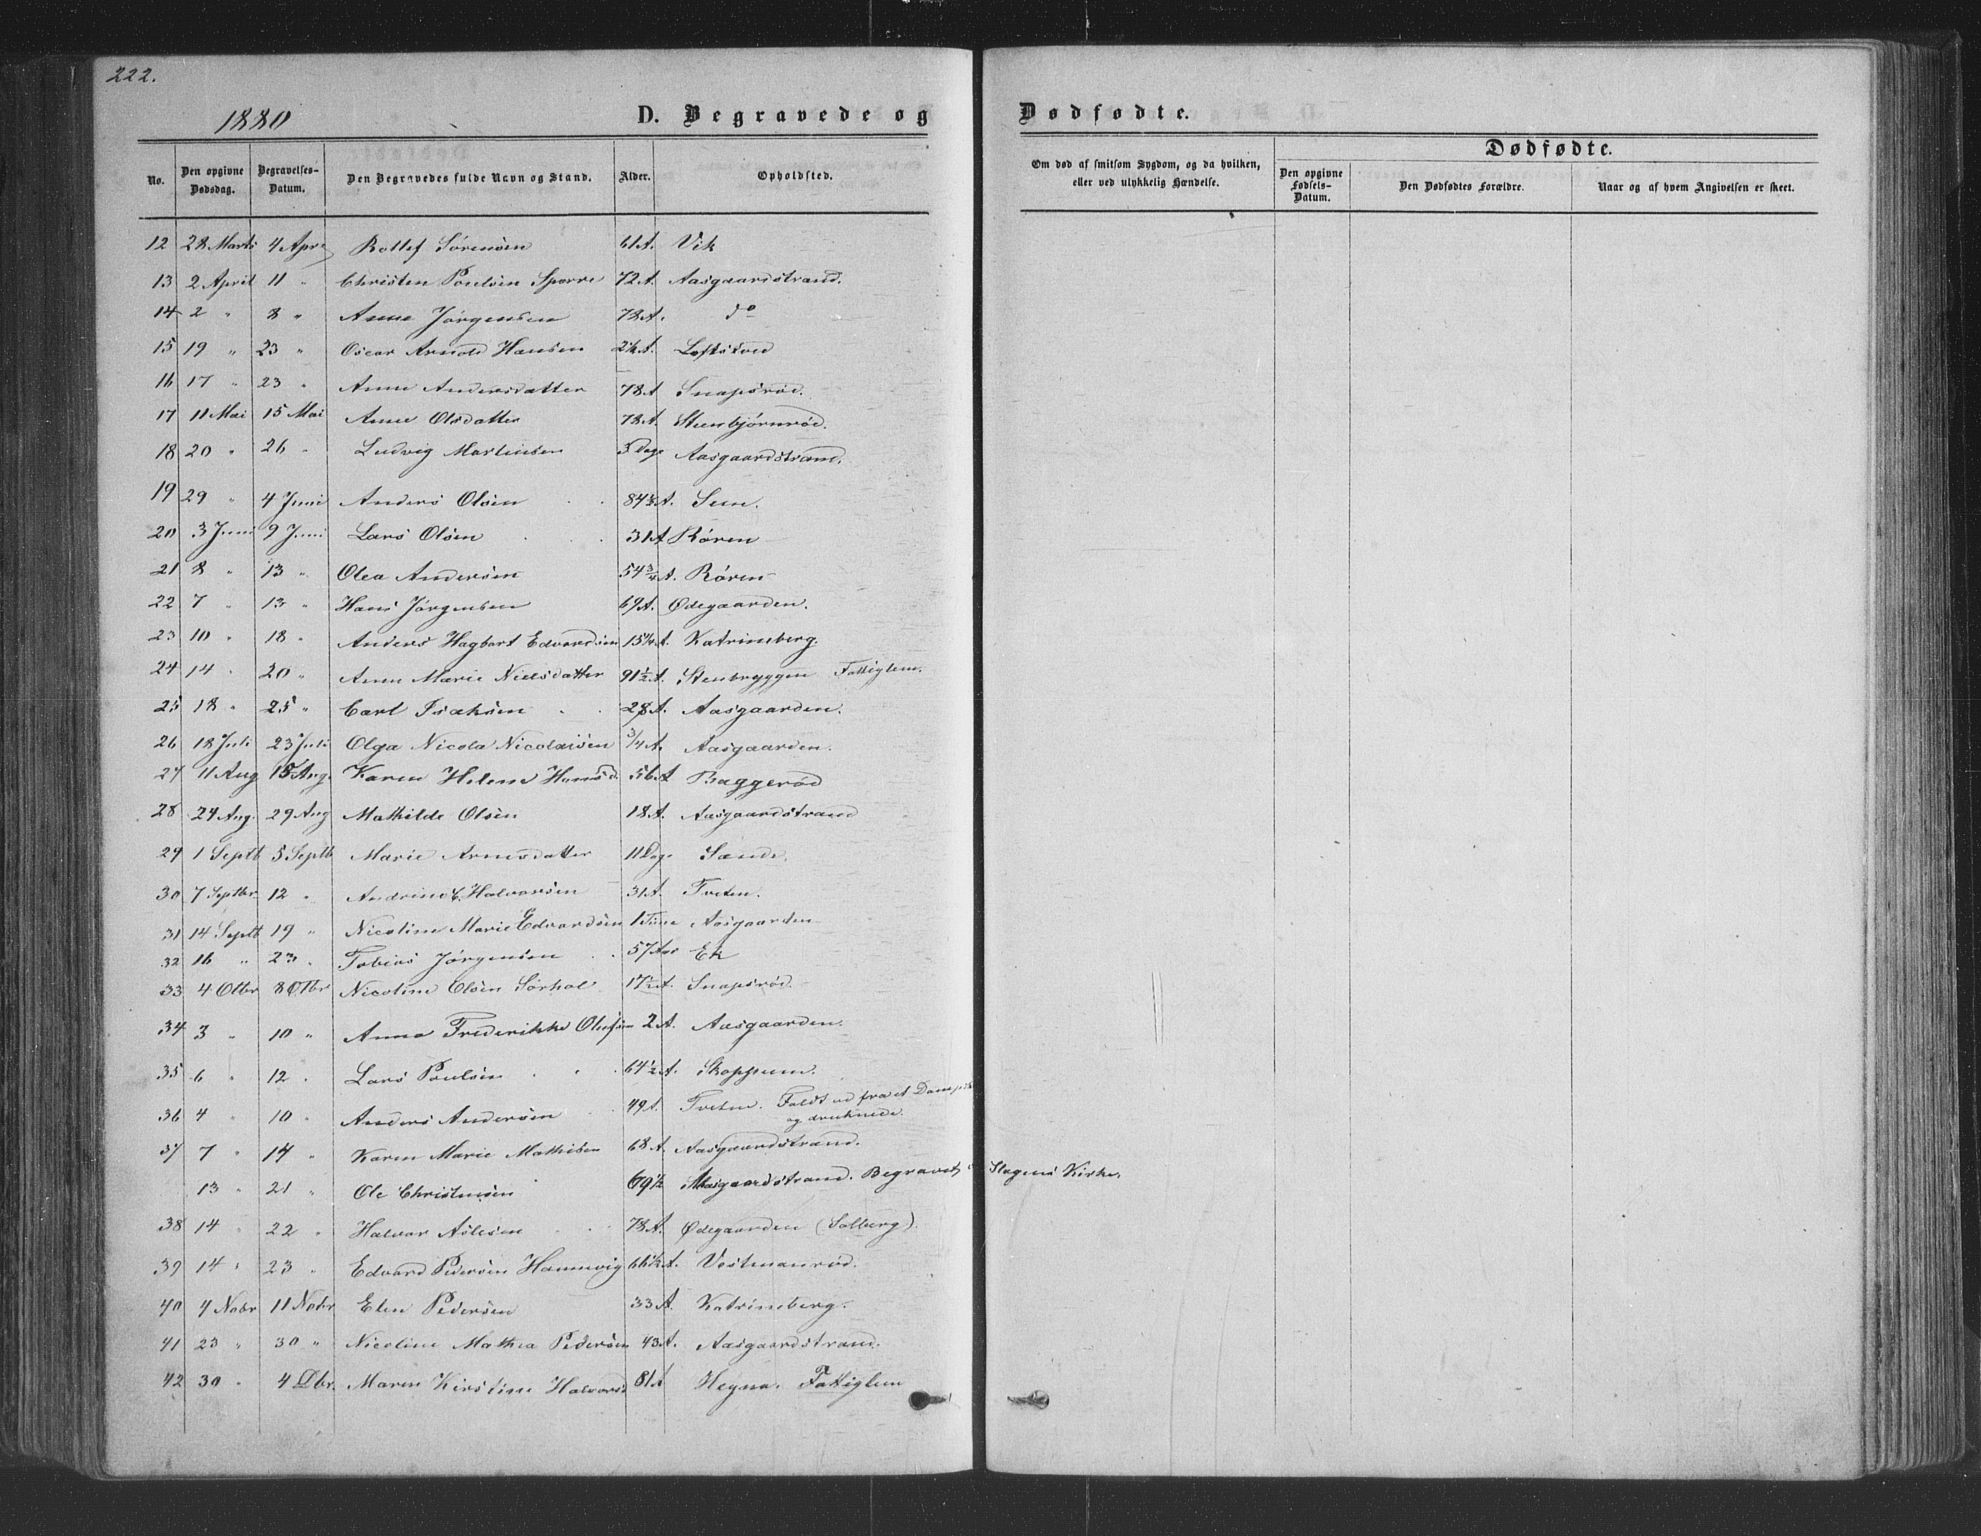 222.
1880 D. Begravede og Dødfødte.
No. Den opgivne Dødsdag. Begravelses-Datum. Den Begravedes fulde Navn og Stand. Alder. Opholdsted.
Om død af smitsom Sygdom, og da hvilken, eller ved ulykkelig Hændelse.
Dødfødte.
Den opgivne Fødsels-Datum. Den Dødfødtes Forældre. Naar og af hvem Angivelsen er skeet.
12 28 Marts 4 Apr Rollef Sørensen 61 A. Vik
13 2 April 11 " Christen Poulsen Sporre 72 A. Aasgaardstrand.
14 2 " 8 " Anne Jørgensen 78 A. do
15 19 " 23 " Oscar Arnold Hansen 2½ A.
16 17 " 23 " Anne Andersdatter 78 A Snapsrød.
17 11 Mai 15 Mai Anne Olsdatter 78 A. Steenbjørnrød.
18 20 " 26 " Ludvig Martinsen 5 Dage Aasgaardstrand.
19 29 " 4 Juni Anders Olsen 84½ A. Sem.
20 3 Juni 9 Juni Lars Olsen 31 A Røren
21 8 " 13 " Olea Andersen 54¾ A. Røren
22 7 " 13 " Hans Jørgensen 69 A. Ødegaarden.
23 10 " 18 " Anders Hagbart Edvardsen 15¼ A. Katrineberg.
24 14 " 20 " Anne Marie Nielsdatter 91½ A. Stenbryggen Fattiglem.
25 18 " 25 " Carl Isaksen 28 A. Aasgaarden.
26 18 Juli 23 Juli Olga Nicola Nicolaisen ¾ A Aasgaarden.
27 11 Aug 15 Aug. Karen Helene Hansd. 56 A Baggerød
28 24 Aug. 29 Aug Mathilde Olsen 18 A. Aasgaardstrand
29 1 Septb 5 Septb Marie Arnesdatter 11 Dage Sande.
30 7 Septbr 12 " Halvorsen 31 A. Tveten.
31 14 Septb 19 " Nicoline Marie Edvardsen 1 Time Aasgaarden
32 16 " 23 " Tobias Jørgensen 57 Aar Ek
33 4 Otbr 8 Otbr Nicoline Olsen Sørhol 17½ A. Snapsrød.
34 3 " 10 " Anna Frederikke Olufsen 2 A. Aasgaarden.
35 6 " 12 " Lars Poulsen 64½ A. Skoppum.
36 4 " 10 " Anders Andersen 49 A. Tveten. Faldt ud fra et Dampsk
og druknede.
37 7 " 14 " Karen Marie Mathisen 68 A Aasgaardstrand.
13 " 21 " Ole Christensen 69½ Aasgaardstrand. Begravet i Slagens Kirke.
38 14 " 22 " Halvor Aslesen 78 A. Ødegaarden (Solberg).
39 14 " 23 " Edvard Pedersen Hannevig 66½ A. Vestmanrød.
40 4 Nobr 11 Nobr Elen Pedersen 33 A. Katrineberg.
41 23 " 30 " Nicoline Mathea Pedersen 43 A. Aasgaardstrand.
42 30 " 4 Dbr. Maren Kirstine Halvorsd 81 A Heyna. Fattiglem